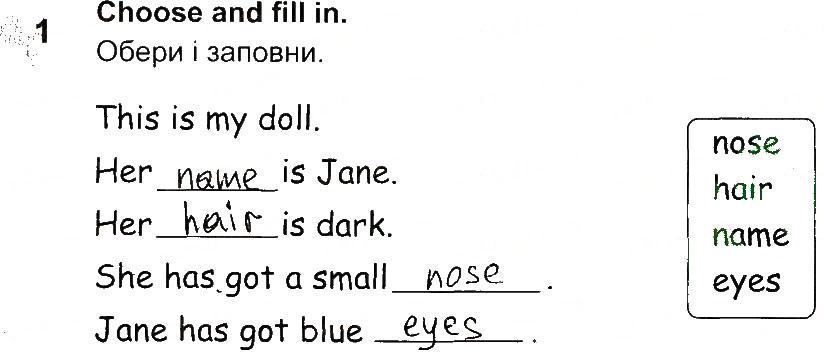 1
Choose and fill in.
Обери і заповни.
This is my doll.
Her name is Jane.
Her hair is dark.
She has got a small nose .
Jane has got blue eyes .
nose
hair
name
eyes